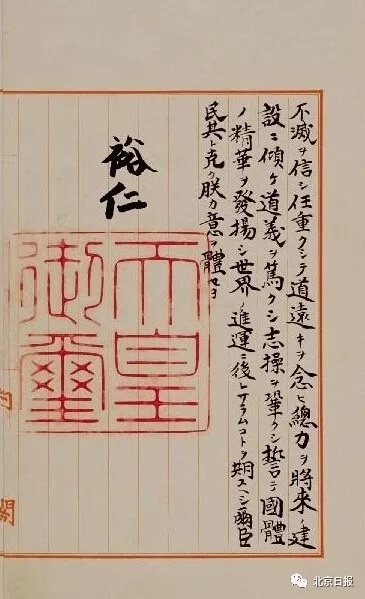 不滅ヲ信シ任重クシテ道遠キヲ念ヒ總力ヲ將來ノ建
設ニ傾ケ道義ヲ篤クシ志操ヲ鞏クシ誓テ國體
ノ精華ヲ發揚シ世界ノ進運ニ後レサラムコトヲ期スヘシ爾臣
民其レ克ク朕カ意ヲ體セヨ
裕仁
天皇
御璽
北京日报